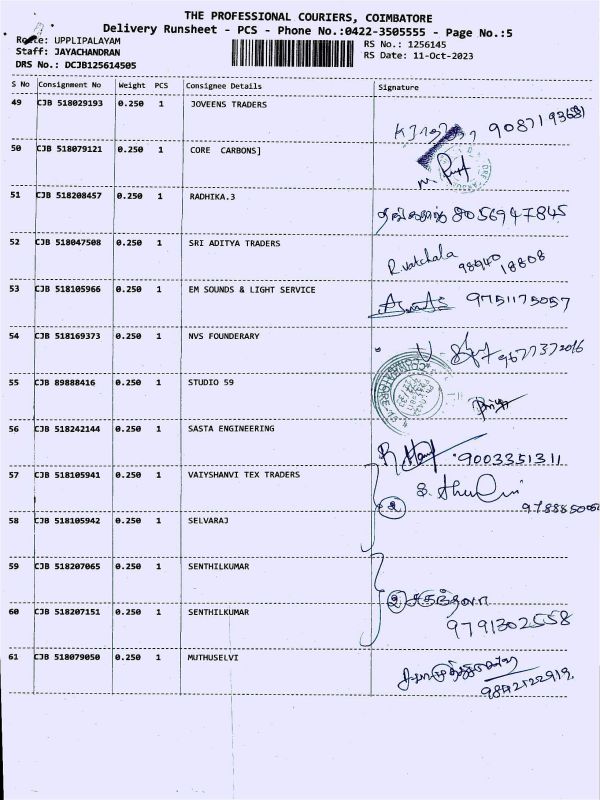 THE PROFESSIONAL COURIERS, COIMBATORE
Delivery Runsheet - PCS - Phone No.:0422-3505555 - Page No.:5
Route: UPPLIPALAYAM
RS No.: 1256145
Staff: JAYACHANDRAN
RS Date: 11-Oct-2023
DRS No.: DCJB125614505
S No Consignment No Weight PCS Consignee Details Signature
49 CJB 518029193 0.250 1 JOVEENS TRADERS
9087193681
50 CJB 518079121 0.250 1 CORE CARBONS]
51 CJB 518208457 0.250 1 RADHIKA.3
8056947845
52 CJB 518047508 0.250 1 SRI ADITYA TRADERS
R. Vatchala 98940 18808
53 CJB 518105966 0.250 1 EM SOUNDS & LIGHT SERVICE
9751175057
54 CJB 518169373 0.250 1 NVS FOUNDERARY
9677372016
55 CJB 89888416 0.250 1 STUDIO 59
Priya
56 CJB 518242144 0.250 1 SASTA ENGINEERING
9003351311
57 CJB 518105941 0.250 1 VAIYSHANVI TEX TRADERS
2
58 CJB 518105942 0.250 1 SELVARAJ
59 CJB 518207065 0.250 1 SENTHILKUMAR
2
60 CJB 518207151 0.250 1 SENTHILKUMAR
9791302558
61 CJB 518079050 0.250 1 MUTHUSELVI
9842122919